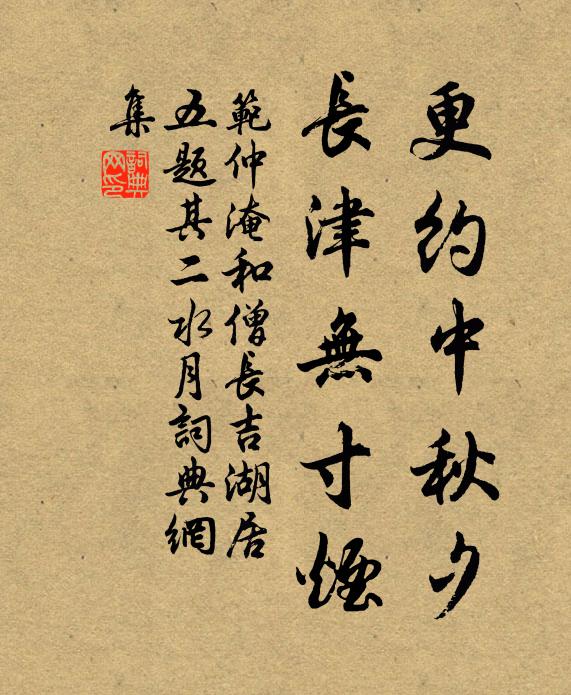 更约中秋夕
長津無寸煙
範仲淹和僧長吉湖居
五题其二水月詞典網
集
詞典
网印